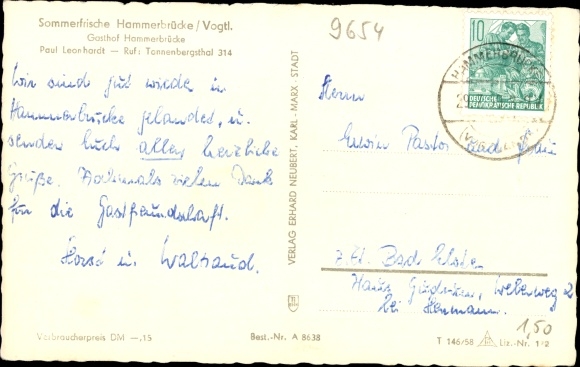 Sommerfrische Hammerbrücke / Vogtl.
Gasthof Hammerbrücke
Paul Leonhardt — Ruf: Tannenbergsthal 314
9654
Wir sind gut wieder in
Hammerbrücke gelandet, u.
senden Euch allen herzliche
Grüße. Nochmals vielen Dank
für die Gastfreundschaft.
Horst u. Waltraud.
VERLAG ERHARD NEUBERT, KARL-MARX-STADT
10
DEUTSCHE
DEMOKRATISCHE REPUBLIK
Hammerbrücke
(Vogtl)
Herrn
Erwin Pastor und Frau
z. Zt. Bad Elster
Haus, Weberweg 2
bei Hermann.
1,50
Verbraucherpreis DM —,15
Best.-Nr. A 8638
T 146/58
Liz.-Nr. 1/2